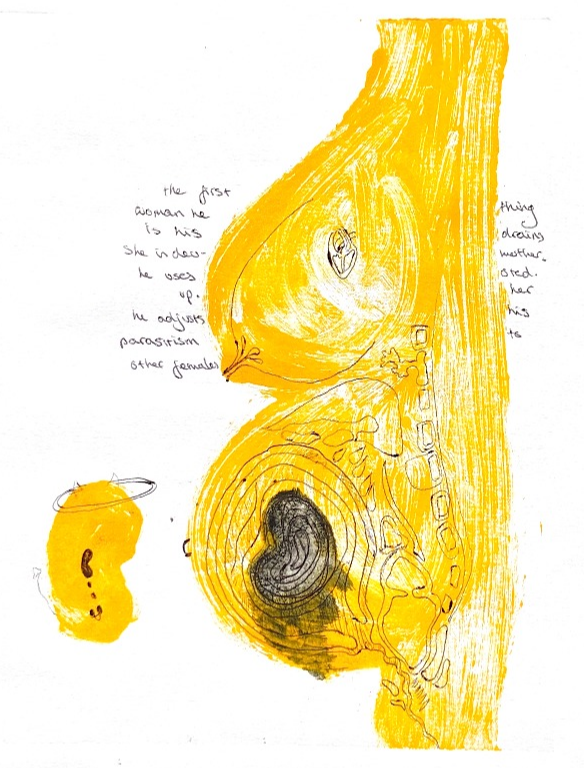 the first
woman he
is his
She is dev-
he uses
up.
he adjusts
parasitism
other females
thing
drains
mother.
oted.
her
his
to